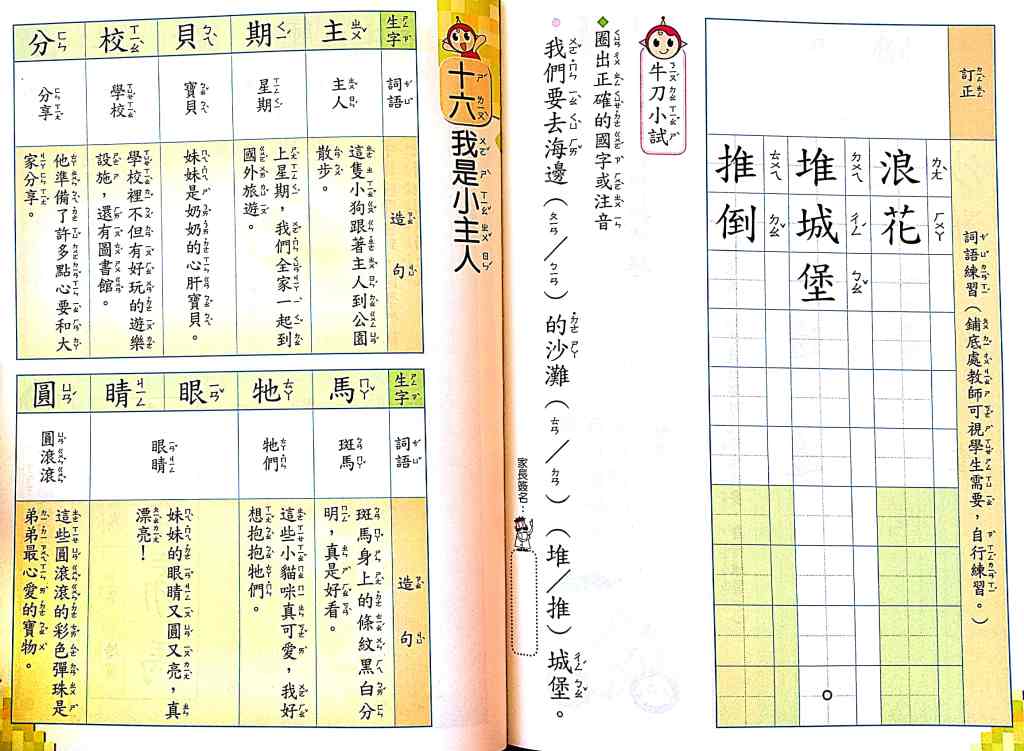 訂正
詞語練習（鋪底處教師可視學生需要，自行練習。）
浪花
堆城堡
推倒
牛刀小試
圈出正確的國字或注音
我們要去海邊（ㄆㄧㄢ／ㄅㄧㄢ）的沙灘（ㄊㄢ／ㄌㄢ）（堆／推）城堡。
家長簽名：
十六 我是小主人
生字
詞語
造句
主
主人
這隻小狗跟著主人到公園散步。
期
星期
上星期，我們全家一起到國外旅遊。
貝
寶貝
妹妹是奶奶的心肝寶貝。
校
學校
學校裡不但有好玩的遊樂設施，還有圖書館。
分
分享
他準備了許多點心要和大家分享。
生字
詞語
造句
馬
斑馬
斑馬身上的條紋黑白分明，真是好看。
牠
牠們
這些小貓咪真可愛，我好想抱抱牠們。
眼
睛
眼睛
妹妹的眼睛又圓又亮，真漂亮！
圓
圓滾滾
這些圓滾滾的彩色彈珠是弟弟最心愛的寶物。